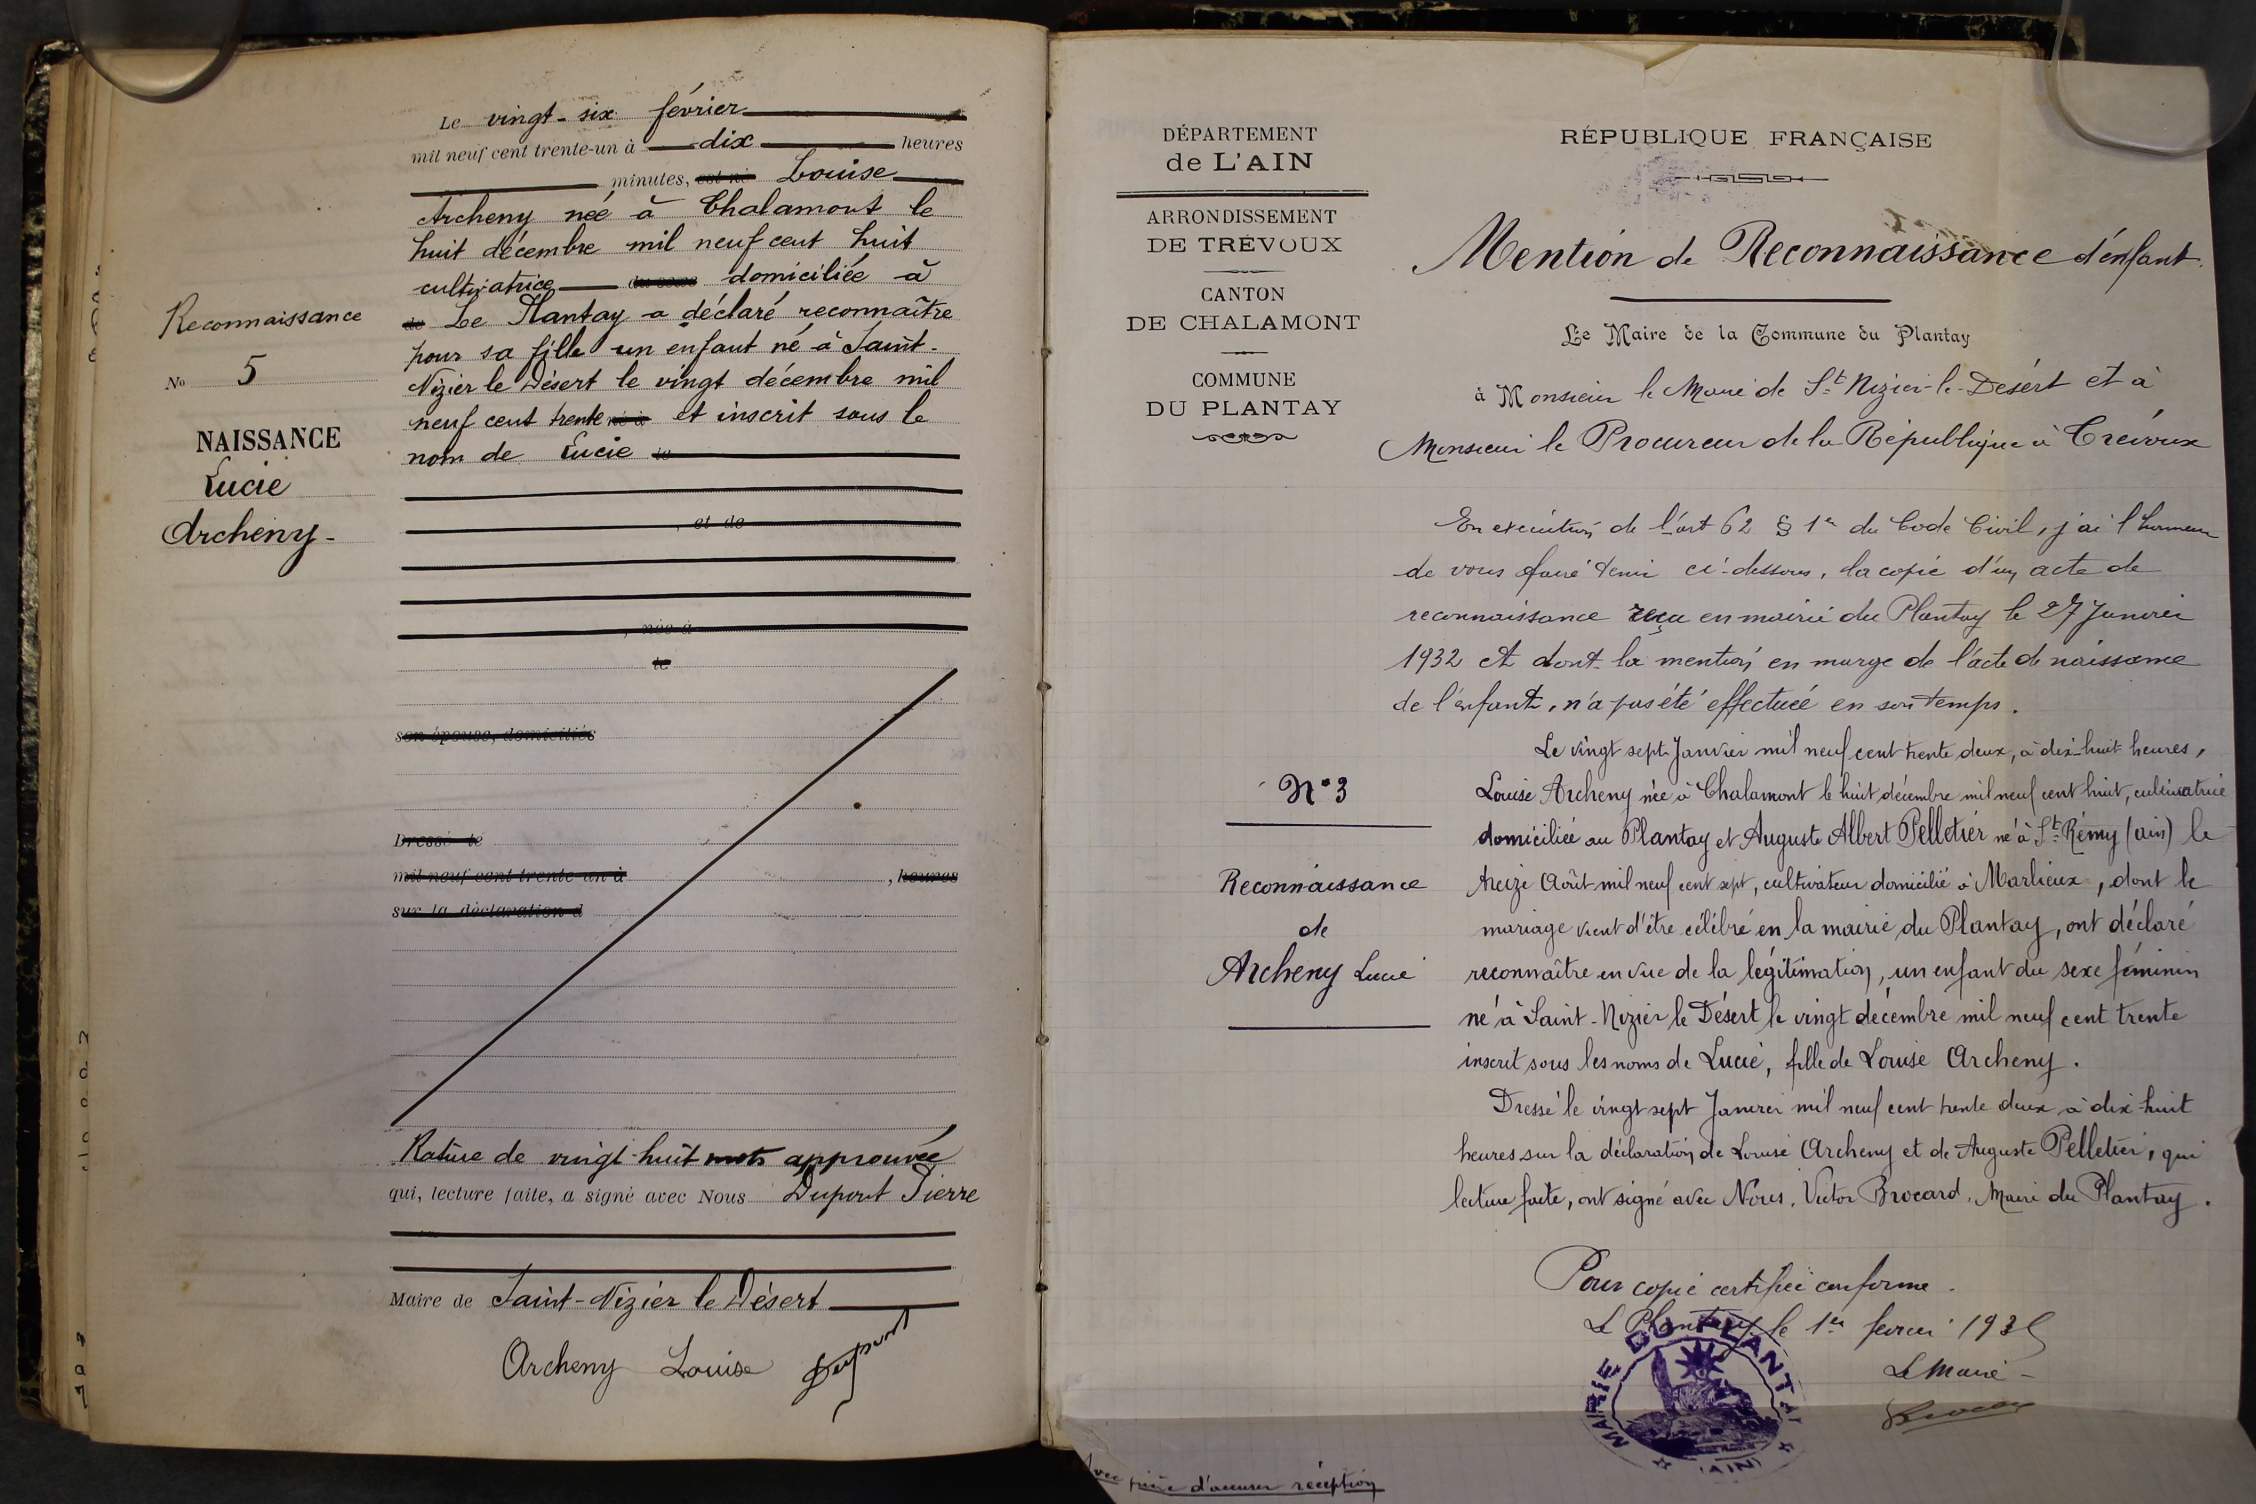 Reconnaissance
No 5
NAISSANCE
Lucie
Archeny -
Le vingt-six février
mil neuf cent trente-un à dix heures
minutes, est né Louise
Archeny née à Chalamont le
huit décembre mil neuf cent huit
cultivatrice domiciliée à
de Le Plantay a déclaré reconnaître
pour sa fille un enfant né à Saint-
Nizier le Désert le vingt décembre mil
neuf cent trente né à et inscrit sous le
nom de Lucie le
, et de
, née à
le
son épouse, domiciliés
Dressé le
mil neuf cent trente-un à , heures
sur la déclaration d
Rature de vingt-huit mots approuvée
qui, lecture faite, a signé avec Nous Dupont Pierre
Maire de Saint-Nizier le Désert
Archeny Louise Dupont
DÉPARTEMENT
de L'AIN
ARRONDISSEMENT
DE TRÉVOUX
CANTON
DE CHALAMONT
COMMUNE
DU PLANTAY
RÉPUBLIQUE FRANÇAISE
Mention de Reconnaissance d'enfant.
Le Maire de la Commune du Plantay
à Monsieur le Maire de St Nizier-le-Desért et à
Monsieur le Procureur de la République à Trévoux
En exécution de l'art 62 § 1er du Code Civil, j'ai l'honneur
de vous faire tenir ci-dessous, la copie d'un acte de
reconnaissance reçu en mairie du Plantay le 27 Janvier
1932 et dont la mention en marge de l'acte de naissance
de l'enfant, n'a pas été effectuée en son temps.
N° 3
Reconnaissance
de
Archeny Lucie
Le vingt sept Janvier mil neuf cent trente deux, à dix-huit heures,
Louise Archeny née à Chalamont le huit décembre mil neuf cent huit, cultivatrice
domiciliée au Plantay et Auguste Albert Pelletier né à St Rémy (ain) le
treize Août mil neuf cent sept, cultivateur domicilié à Marlieux, dont le
mariage vient d'être célébré en la mairie du Plantay, ont déclaré
reconnaître en vue de la légitimation, un enfant du sexe féminin
né à Saint-Nizier le Désert le vingt décembre mil neuf cent trente
inscrit sous les noms de Lucie, fille de Louise Archeny.
Dressé le vingt sept Janvier mil neuf cent trente deux à dix-huit
heures sur la déclaration de Louise Archeny et de Auguste Pelletier, qui
lecture faite, ont signé avec Nous, Victor Brocard, Maire du Plantay.
Pour copie certifiée conforme.
Le Plantay le 1er février 193
Le Maire -
Brocard
MAIRIE DU PLANTAY
(AIN)
Avec prière d'accuser réception